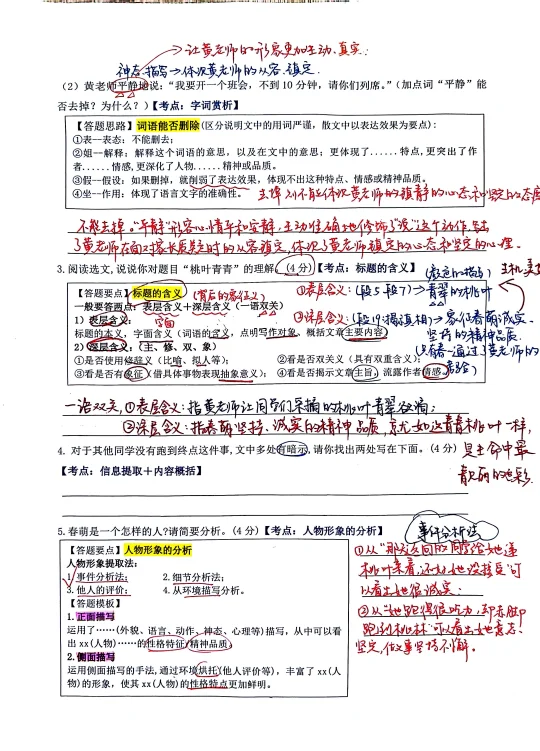 让黄老师的形象更加生动、真实.
神态描写→体现黄老师的从容、镇定.
(2)黄老师平静地说:“我要开一个班会,不到10分钟,请你们列席。”(加点词“平静”能
否去掉?为什么?)【考点:字词赏析】
【答题思路】词语能否删除(区分说明文中的用词严谨,散文中以表达效果为要点):
①表--表态:不能删去;
②姐--解释:解释这个词语的意思,以及在文中的意思;更体现了......特点,更突出了作
者......情感,更深化了人物......精神或品质。
③假--假设:如果删掉,就削弱了表达效果,体现不出这种特点、情感或精神品质。
④坐--作用:体现了语言文字的准确性。
去掉则不能体现黄老师的镇静的心态和坚定的态度
不能去掉。“平静”形容心情平和安静,生动准确地修饰了“说”这个动作,写出
了黄老师在面对家长质疑时的从容镇定,体现了黄老师镇定的心态和坚定的心理.
3.阅读选文,说说你对题目“桃叶青青”的理解。(4分)【考点:标题的含义】
【答题要点】标题的含义(背后的象征义)
一般要答两点:表层含义+深层含义(一语双关)
1)表层含义:字面
标题的本义,字面含义(词语的含义,点明写作对象、概括文章主要内容)
2)深层含义:(主、修、双、象)
①是否使用修辞义(比喻、拟人等);②看是否双关义(具有双重含义);
③看是否有象征(借具体事物表现抽象意义);④看是否揭示文章主旨,流露作者情感
①表层含义:(段5段7)→青翠的桃叶
②深层含义:(段19揭示真相)→象征春萌诚实、
坚持的精神品质.
一语双关,①表层含义:指黄老师让同学们采摘的桃叶青翠欲滴;
②深层含义:指春萌坚持、诚实的精神品质,京尤如这青青桃叶一样,
是生命中最
靓丽的色彩.
4.对于其他同学没有跑到终点这件事,文中多处有暗示,请你找出两处写在下面。(4分)
【考点:信息提取+内容概括】
5.春萌是一个怎样的人?请简要分析。(4分)【考点:人物形象的分析】
事件分析法
【答题要点】人物形象的分析
人物形象提取法:
1.事件分析法; 2.细节分析法;
3.他人的评价; 4.从环境描写分析。
【答题模板】
1.正面描写
运用了......(外貌、语言、动作、神态、心理等)描写,从中可以看
出xx(人物)......的性格特征(精神品质)
2.侧面描写
运用侧面描写的手法,通过环境烘托(他人评价等),丰富了xx(人
物)的形象,使其xx(人物)的性格特点更加鲜明。
桃叶来看,还如她没接受”可
以看出她很诚实;
②从“她跑得很吃力,却在脚
跑到桃林”可以看出她意志
坚定,做事坚持不懈.